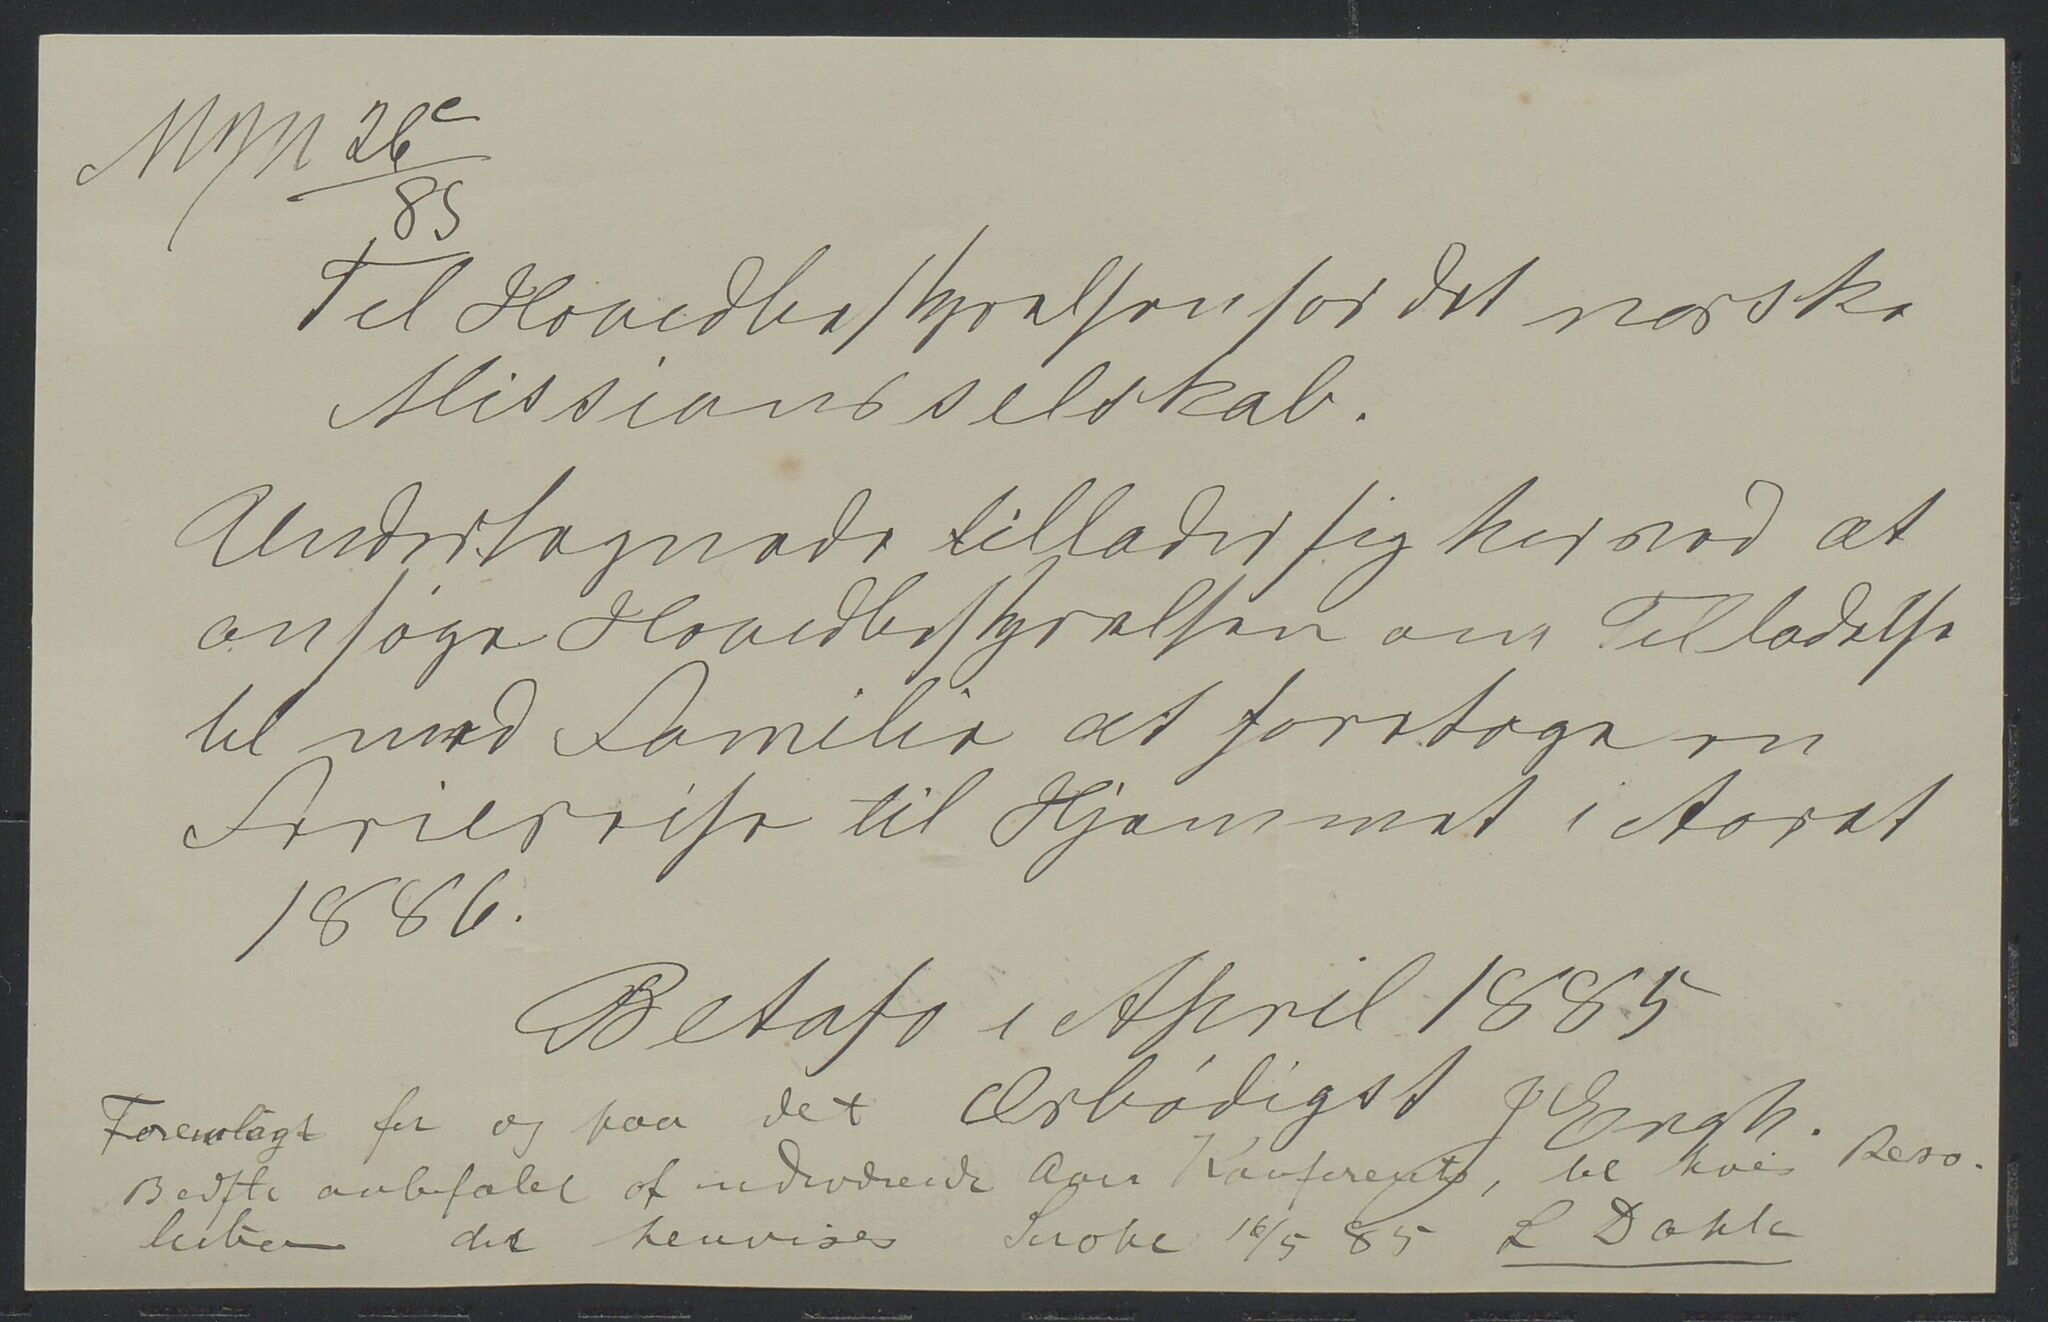 26c
85
Til Hovedbestyrelsen for det norske
Missionsselskab.
Undertegnede tillader sig herved at
ansöge Hovedbestyrelsen om Tilladelse
til med Familie at foretage en
Feriereise til Hjemmet i Aaret
1886.
Betafo i April 1885
Ærbödigst J Engh.
Foremlagt for og paa det
Bedste anbefalet af nærværende Aars Konferents, til hvis Reso-
lution det henvises Sirabe 16/5 85 L Dahle